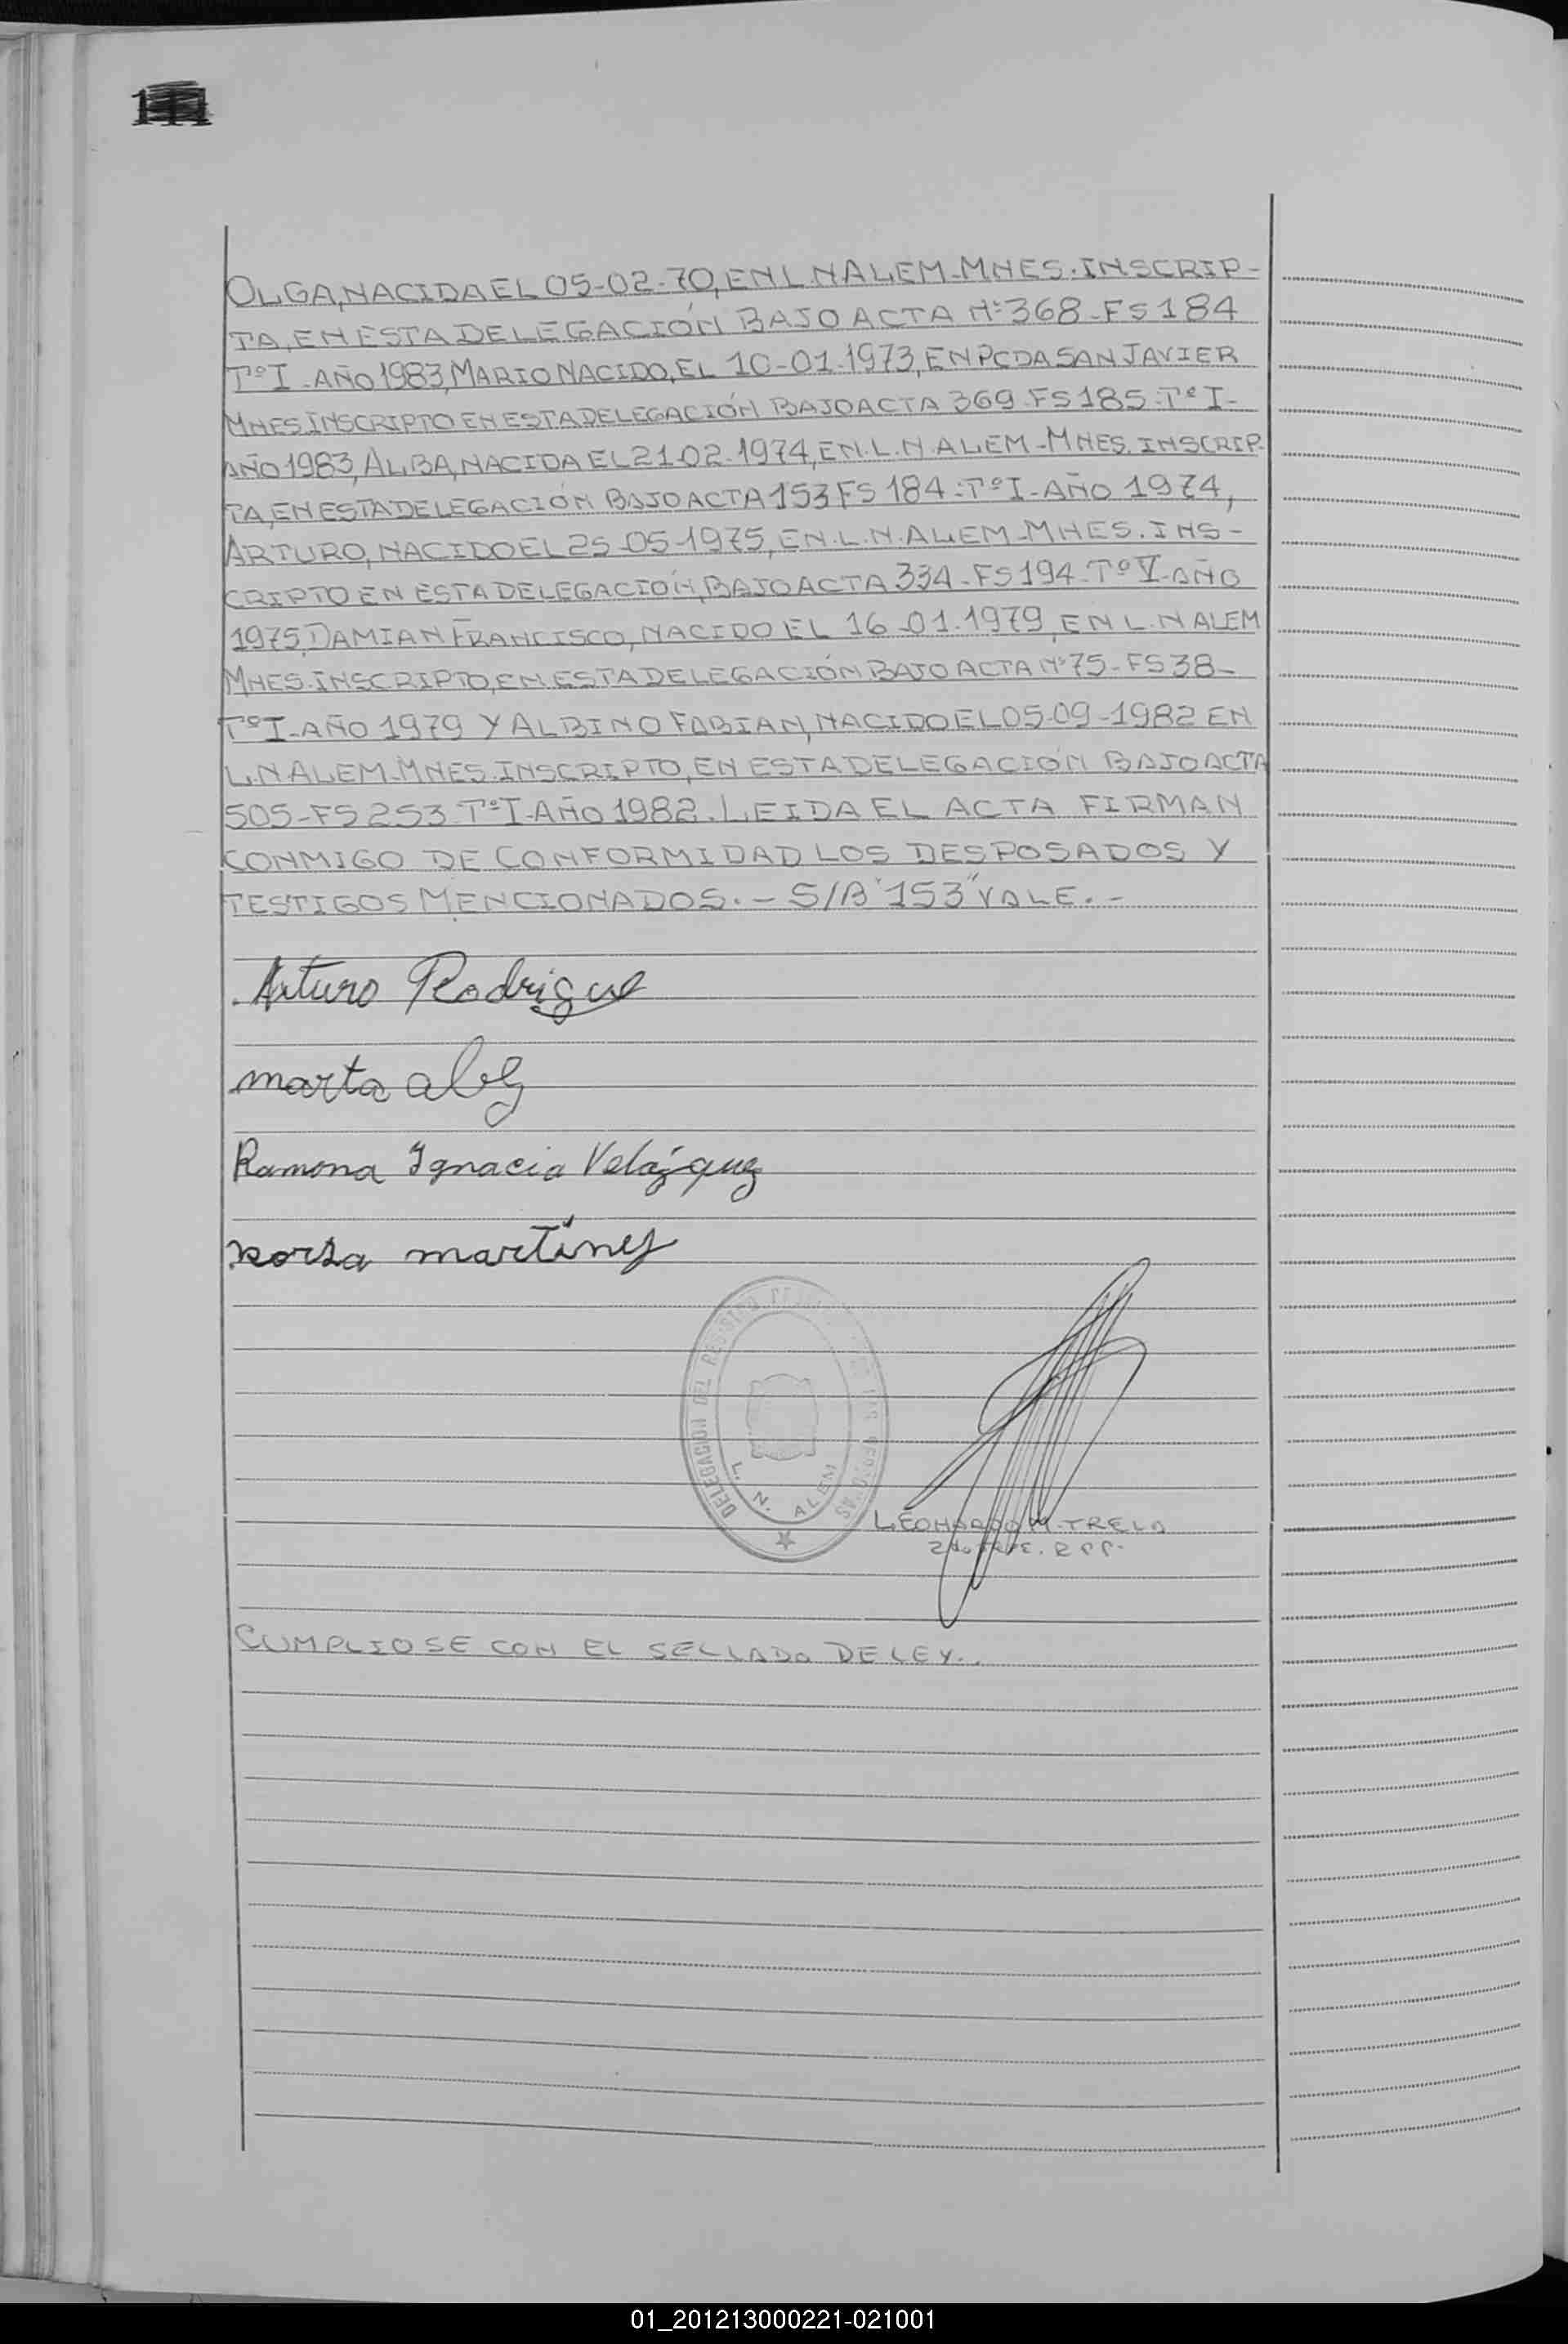 OLGA, NACIDA EL 05-02-70, EN L N ALEM-MNES. INSCRIP-
TA, EN ESTA DELEGACIÓN BAJO ACTA Nº 368-FS 184
TºI-AÑO 1983, MARIO NACIDO, EL 10-01-1973, EN PCDA SAN JAVIER
MNES. INSCRIPTO EN ESTA DELEGACIÓN BAJO ACTA 369-FS 185-TºI-
AÑO 1983, ALBA, NACIDA EL 21-02-1974, EN.L.N.ALEM-MNES. INSCRIP-
TA, EN ESTA DELEGACIÓN BAJO ACTA 153 FS 184-TºI-AÑO 1974,
ARTURO, NACIDO EL 25-05-1975, EN.L.N.ALEM-MNES. INS-
CRIPTO EN ESTA DELEGACIÓN, BAJO ACTA 334-FS 194-TºV-AÑO
1975, DAMIAN FRANCISCO, NACIDO EL 16-01-1979, EN L.N ALEM
MNES. INSCRIPTO, EN ESTA DELEGACIÓN BAJO ACTA Nº 75-FS 38-
TºI-AÑO 1979 Y ALBINO FABIAN, NACIDO EL 05-09-1982 EN
L.N ALEM-MNES. INSCRIPTO, EN ESTA DELEGACIÓN BAJO ACTA
505-FS 253-TºI-AÑO 1982. LEIDA EL ACTA FIRMAN
CONMIGO DE CONFORMIDAD LOS DESPOSADOS Y
TESTIGOS MENCIONADOS.- S/B "153" VALE.-
Arturo Rodrigue
marta
Ramona Ignacia Velázquez
martínez
DELEGACION DEL REGISTRO
L. N. ALEM
LEONARDO M. TRELA
CUMPLIOSE CON EL SELLADO DE LEY..
01_201213000221-021001